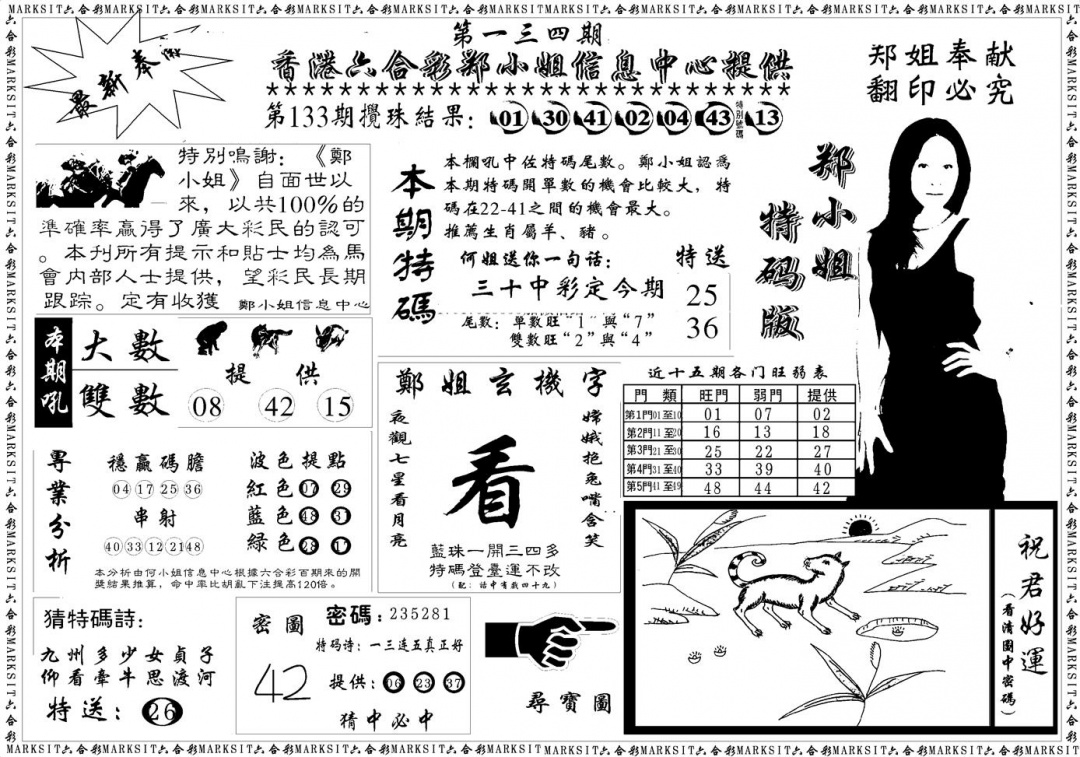 MARKSIT六合彩MARKSIT六合彩MARKSIT六合彩MARKSIT六合彩MARKSIT六合彩MARKSIT六合彩MARKSIT六合彩MARKSIT六合彩MARKSIT
最新奉
第一三四期
香港六合彩郑小姐信息中心提供
★★★★★★★★★★★★★★★★★★★★★★★★★★★★
第133期攪珠結果: 01 30 41 02 04 43 特別號碼 13
郑姐奉献
翻印必究
特別鳴謝: 《鄭
小姐》自面世以
來, 以共100%的
準確率贏得了廣大彩民的認可
。本刊所有提示和貼士均為馬
會內部人士提供, 望彩民長期
跟踪。定有收獲 鄭小姐信息中心
本期特碼
本欄吼中佐特碼尾數。鄭小姐認爲
本期特碼開單數的機會比較大, 特
碼在22-41之間的機會最大。
推薦生肖屬羊、豬。
何姐送你一句话: 特送
三十中彩定今期 25
36
尾數: 單數旺"1"與"7"
雙數旺"2"與"4"
郑小姐
特碼版
本期吼
大數
雙數
提供
08 42 15
鄭姐玄機字
夜觀七星看月亮
看
嫦娥抱兔嘴含笑
藍珠一開三四多
特碼登臺運不改
(配: 話中有数四十九)
近十五期各门旺弱表
門類 旺門 弱門 提供
第1門01至10 01 07 02
第2門11至20 16 13 18
第3門21至30 25 22 27
第4門31至40 33 39 40
第5門41至49 48 44 42
專業分析
穩贏碼膽
04 17 25 36
串射
40 33 12 21 48
波色提點
紅色 07 29
藍色 48 31
緑色 28 17
本分析由何小姐信息中心根據六合彩百期來的開
獎結果推算, 命中率比胡亂下注提高120倍。
猜特碼詩:
九州多少女貞子
仰看牽牛思渡河
特送: 26
密圖
42
密碼: 235281
特码诗: 一三连五真正好
提供: 06 23 37
猜中必中
尋寶圖
祝君好運
(看清圖中密碼)
MARKSIT六合彩MARKSIT六合彩MARKSIT六合彩MARKSIT六合彩MARKSIT六合彩MARKSIT六合彩MARKSIT六合彩MARKSIT六合彩MARKSIT